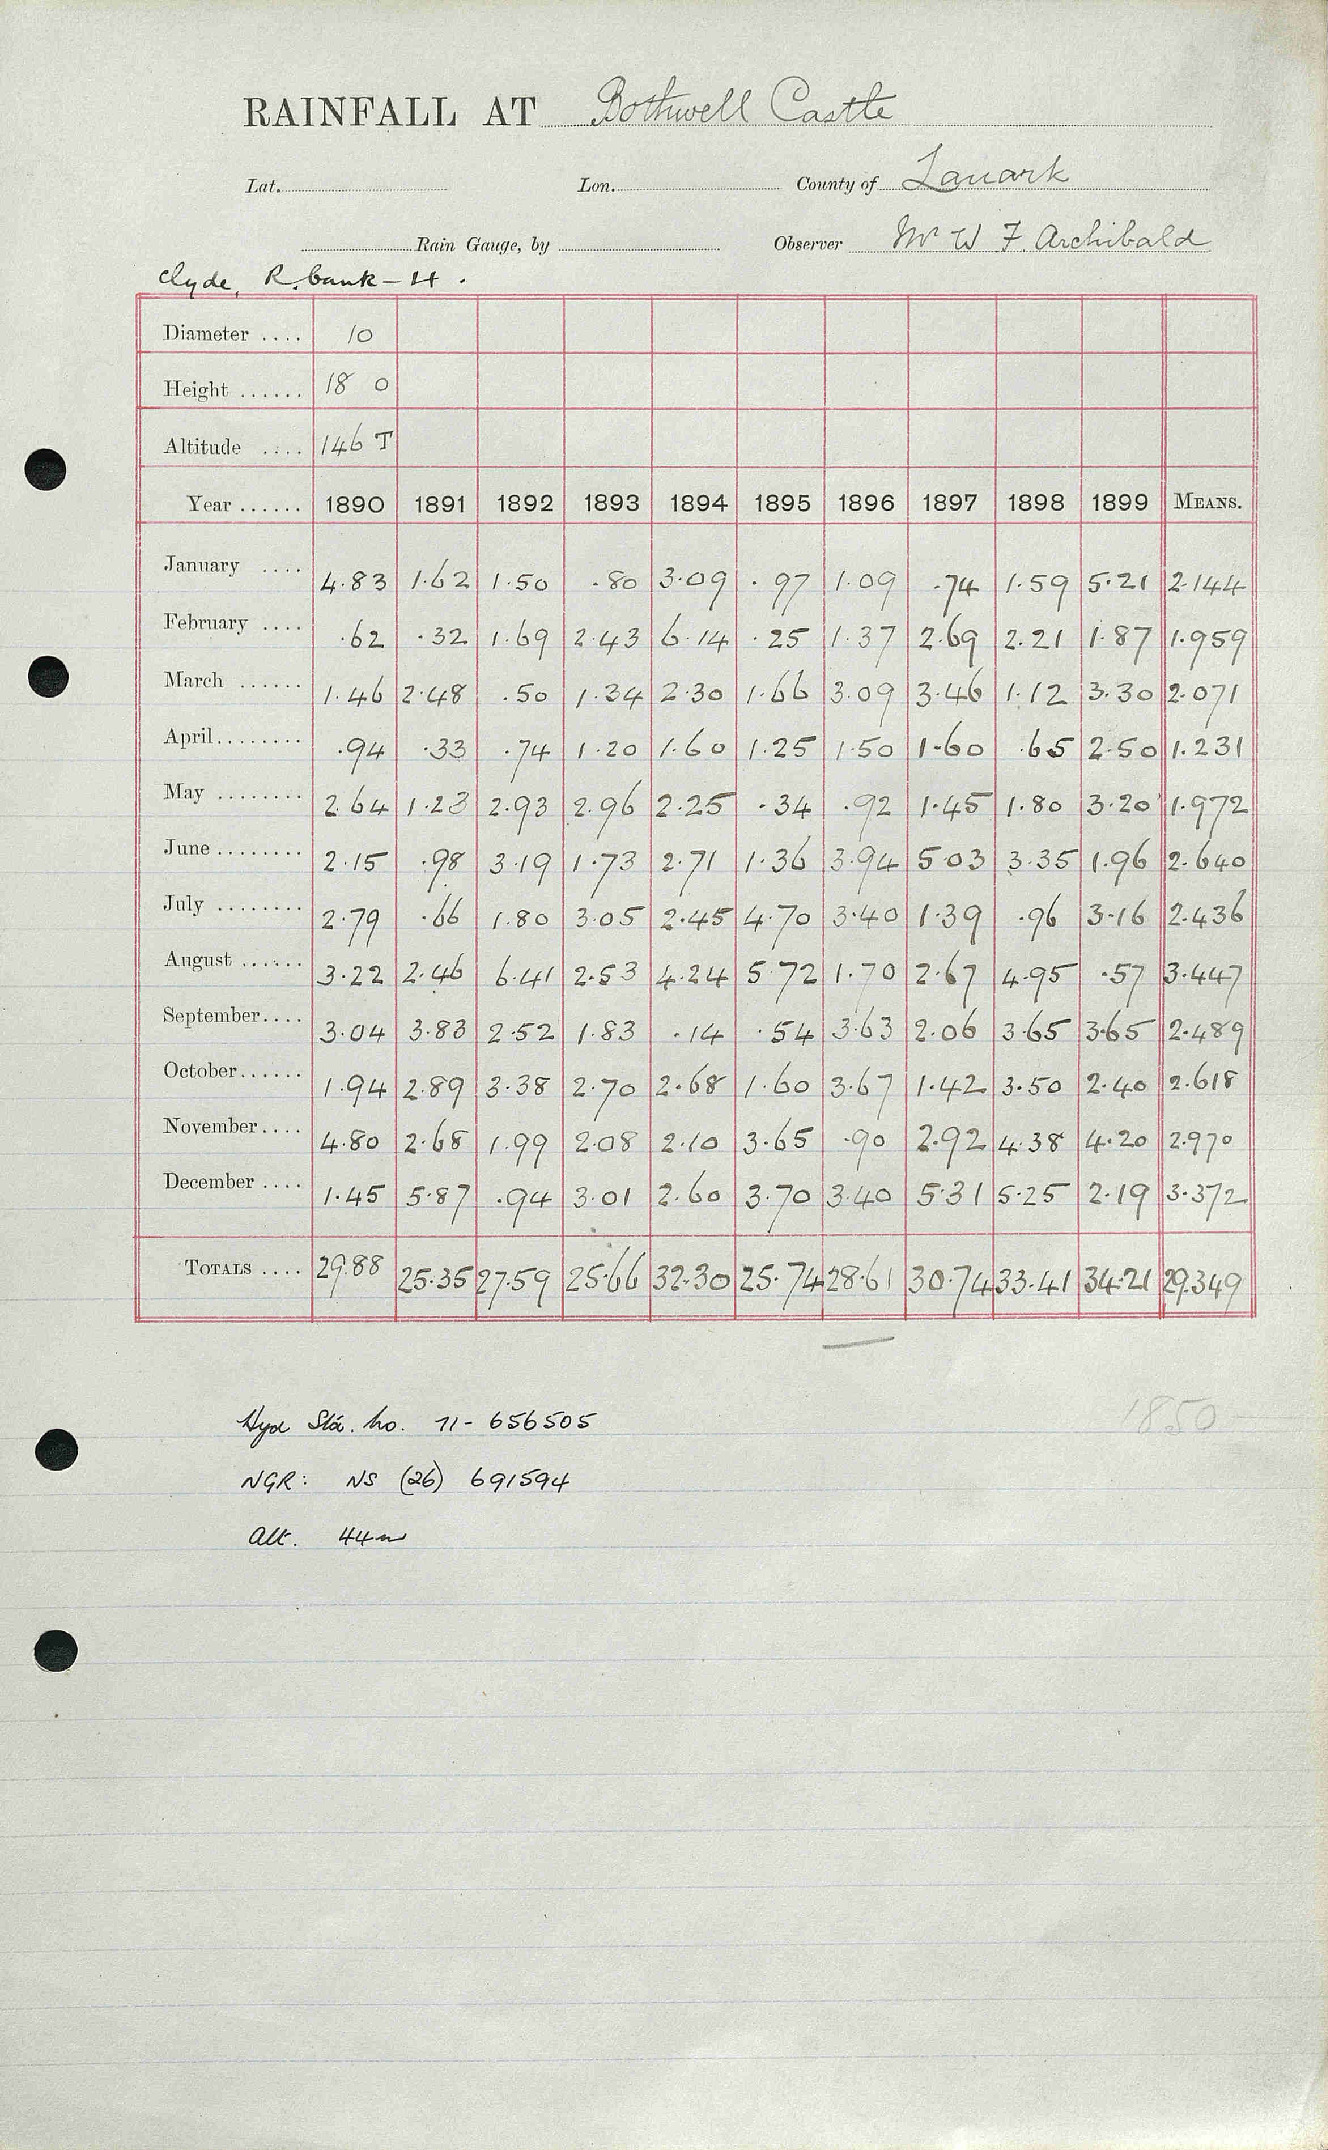 RAINFALL AT Bothwell Castle
Lat. Lon. County of Lanark
Rain Gauge, by Observer Mr W F. Archibald
Clyde, R. bank - H.
Diameter .... 10
Height ...... 18 0
Altitude .... 146 T
Year ...... 1890 1891 1892 1893 1894 1895 1896 1897 1898 1899 MEANS.
January .... 4.83 1.62 1.50 .80 3.09 .97 1.09 .74 1.59 5.21 2.144
February .... .62 .32 1.69 2.43 6.14 .25 1.37 2.69 2.21 1.87 1.959
March ...... 1.46 2.48 .50 1.34 2.30 1.66 3.09 3.46 1.12 3.30 2.071
April........ .94 .33 .74 1.20 1.60 1.25 1.50 1.60 .65 2.50 1.231
May ........ 2.64 1.23 2.93 2.96 2.25 .34 .92 1.45 1.80 3.20 1.972
June ........ 2.15 .98 3.19 1.73 2.71 1.36 3.94 5.03 3.35 1.96 2.640
July ........ 2.79 .66 1.80 3.05 2.45 4.70 3.40 1.39 .96 3.16 2.436
August ...... 3.22 2.46 6.41 2.53 4.24 5.72 1.70 2.67 4.95 .57 3.447
September.... 3.04 3.83 2.52 1.83 .14 .54 3.63 2.06 3.65 3.65 2.489
October...... 1.94 2.89 3.38 2.70 2.68 1.60 3.67 1.42 3.50 2.40 2.618
November.... 4.80 2.68 1.99 2.08 2.10 3.65 .90 2.92 4.38 4.20 2.970
December .... 1.45 5.87 .94 3.01 2.60 3.70 3.40 5.31 5.25 2.19 3.372
TOTALS .... 29.88 25.35 27.59 25.66 32.30 25.74 28.61 30.74 33.41 34.21 29.349
Hyd Sta. no. 71- 656505
1850
NGR: NS (26) 691594
Alt. 44m